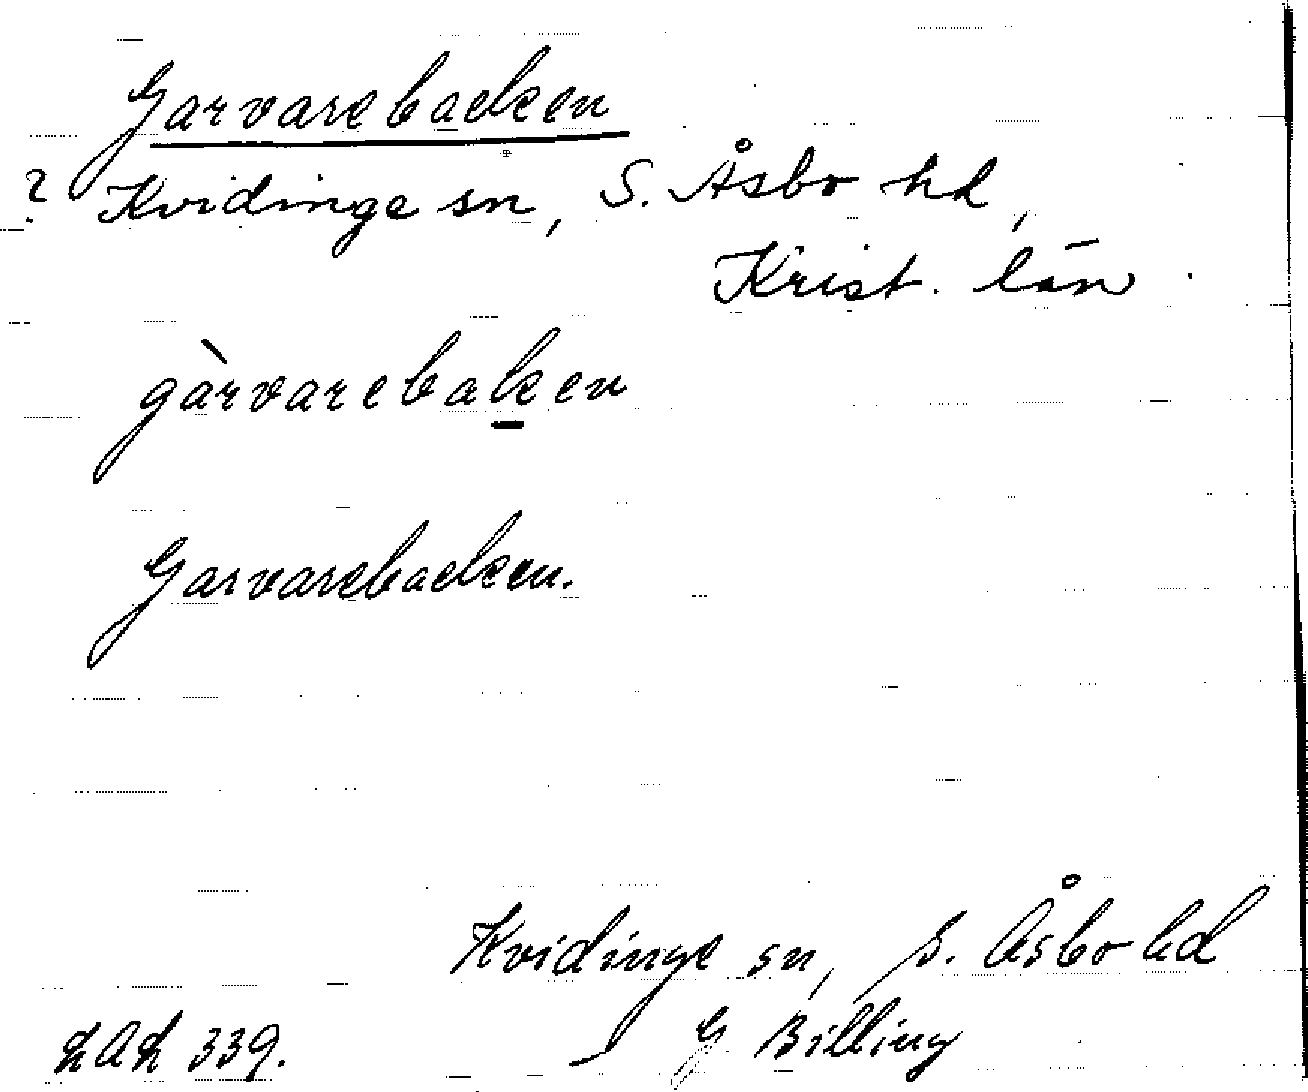 Garvarebacken
? Kvidinge sn, S. Åsbo hd,
Krist. län.
gàrvarebaken
Garvarebacken.
Kvidinge sn, S. Åsbo hd
LAL 339. G Billing